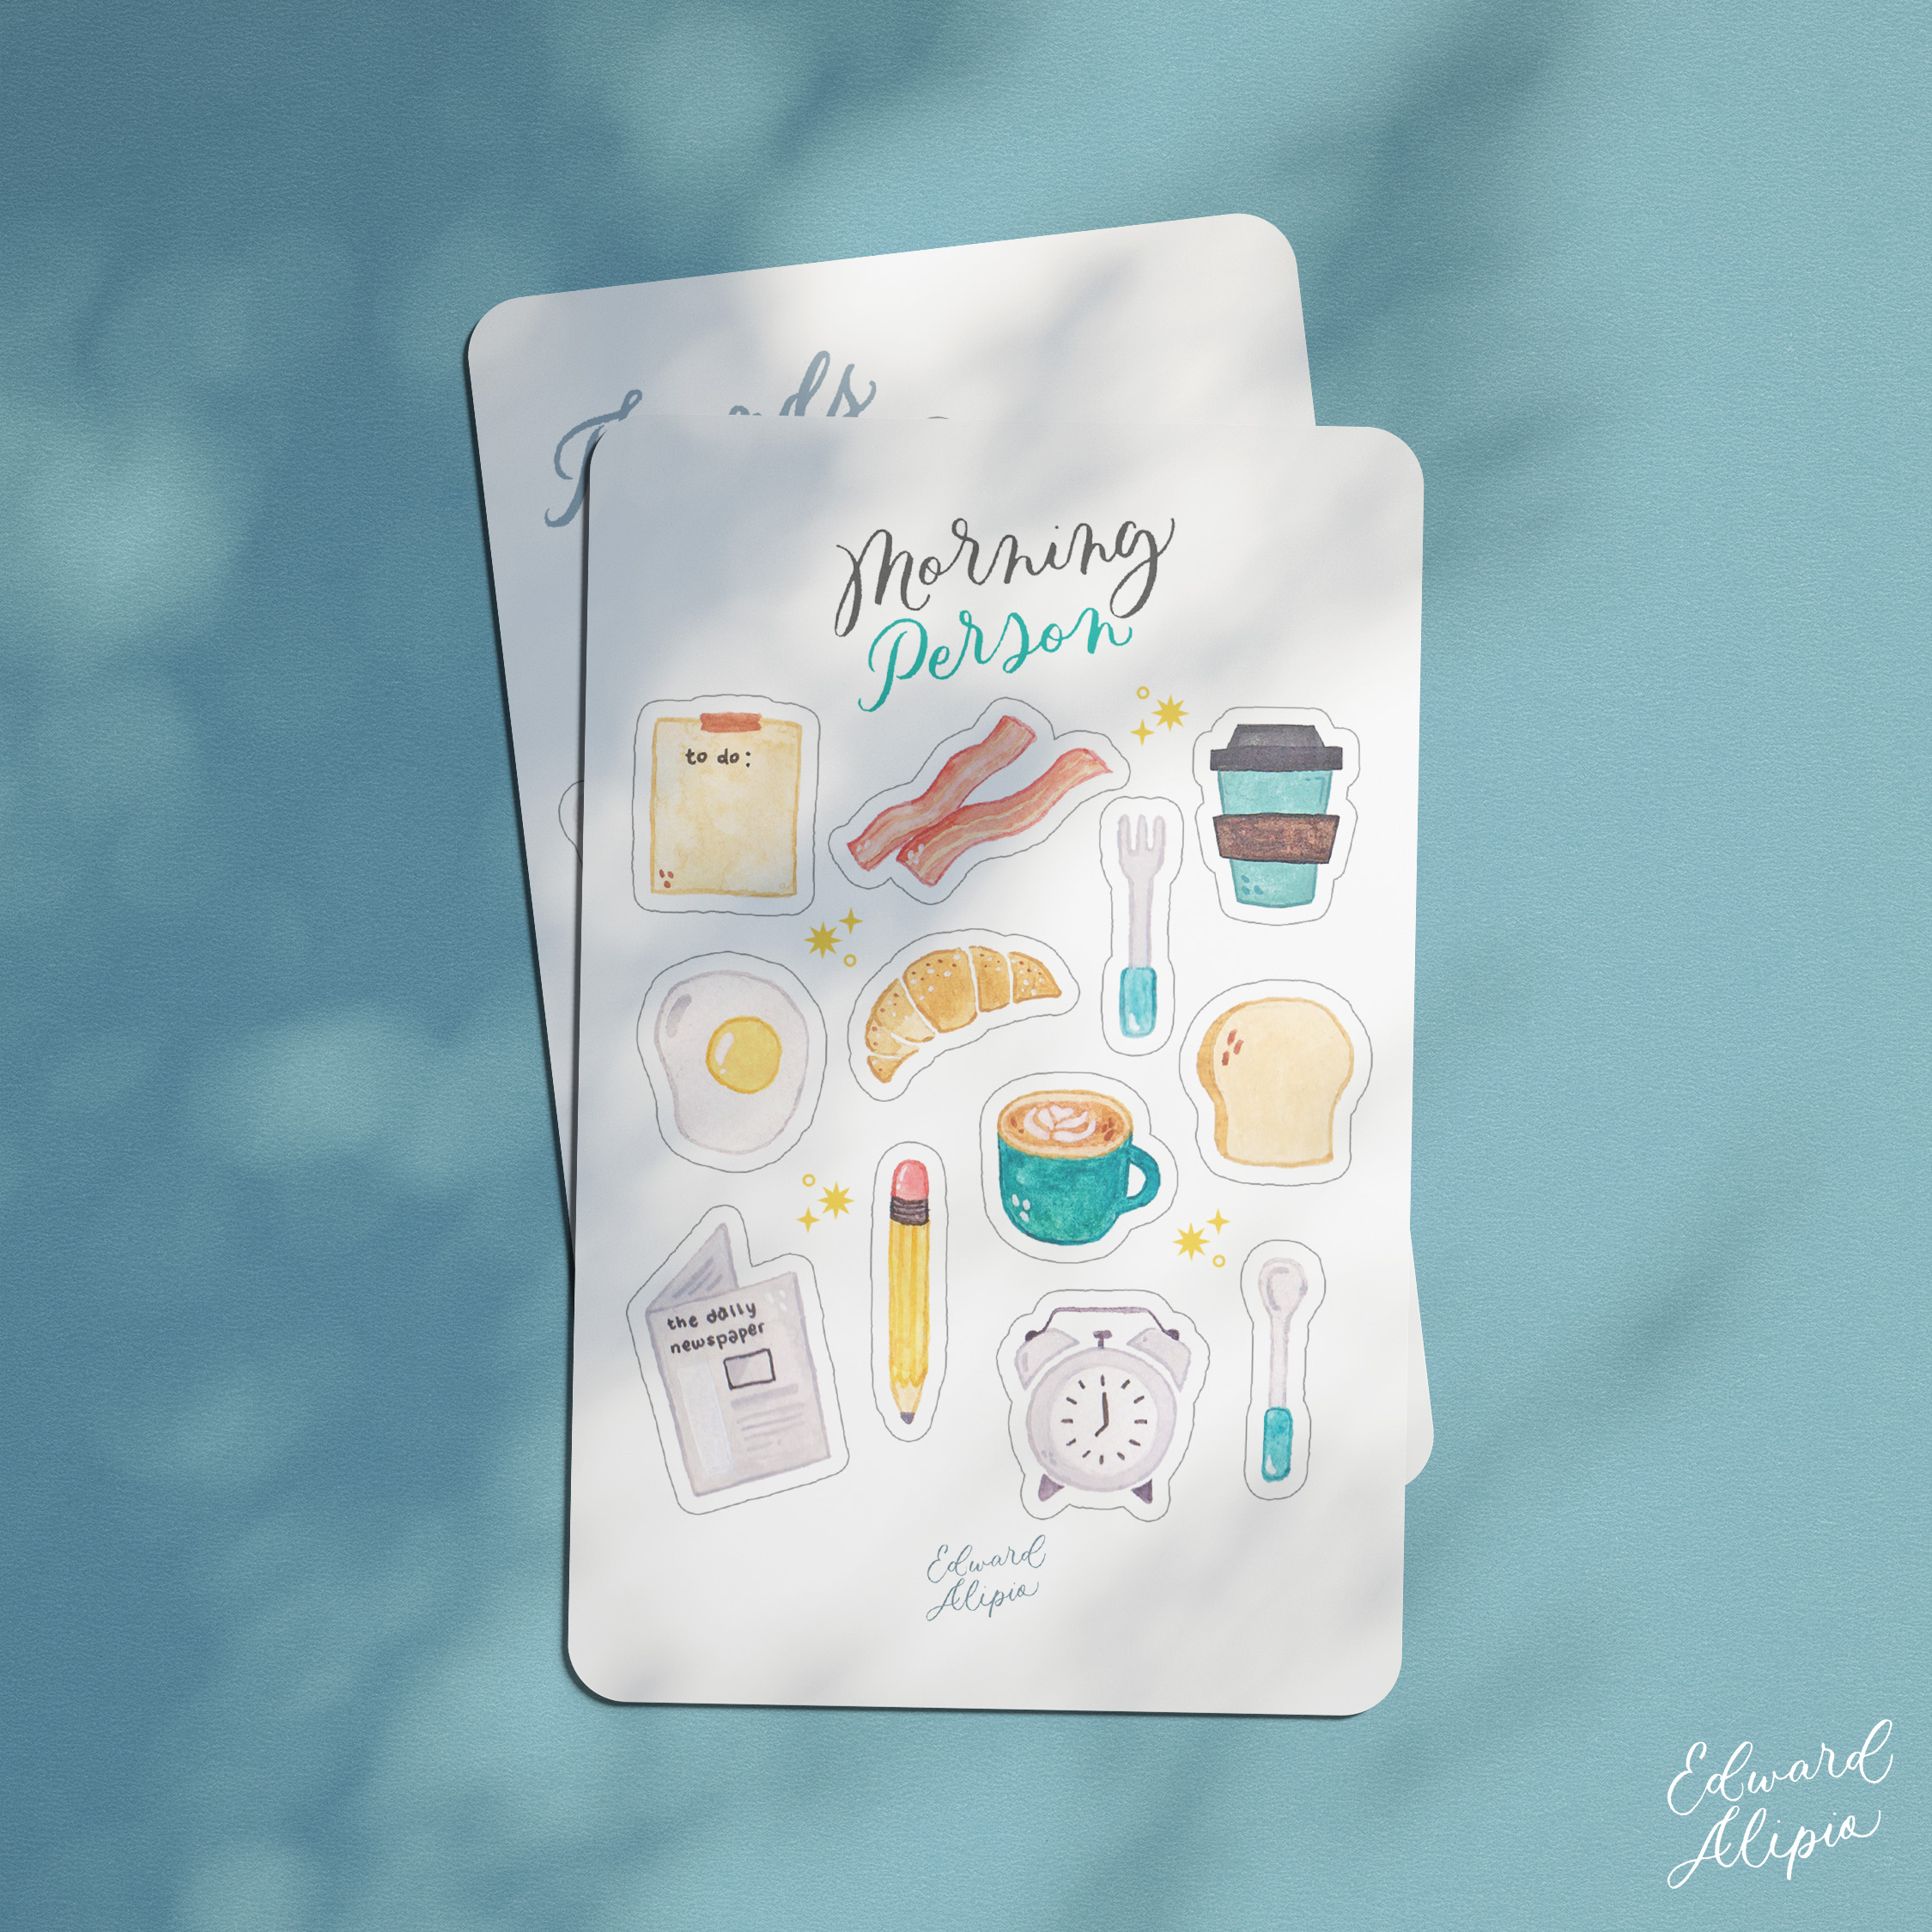 Morning
Person
to do:
the daily
newspaper
Edward
Alipio
Edward
Alipio